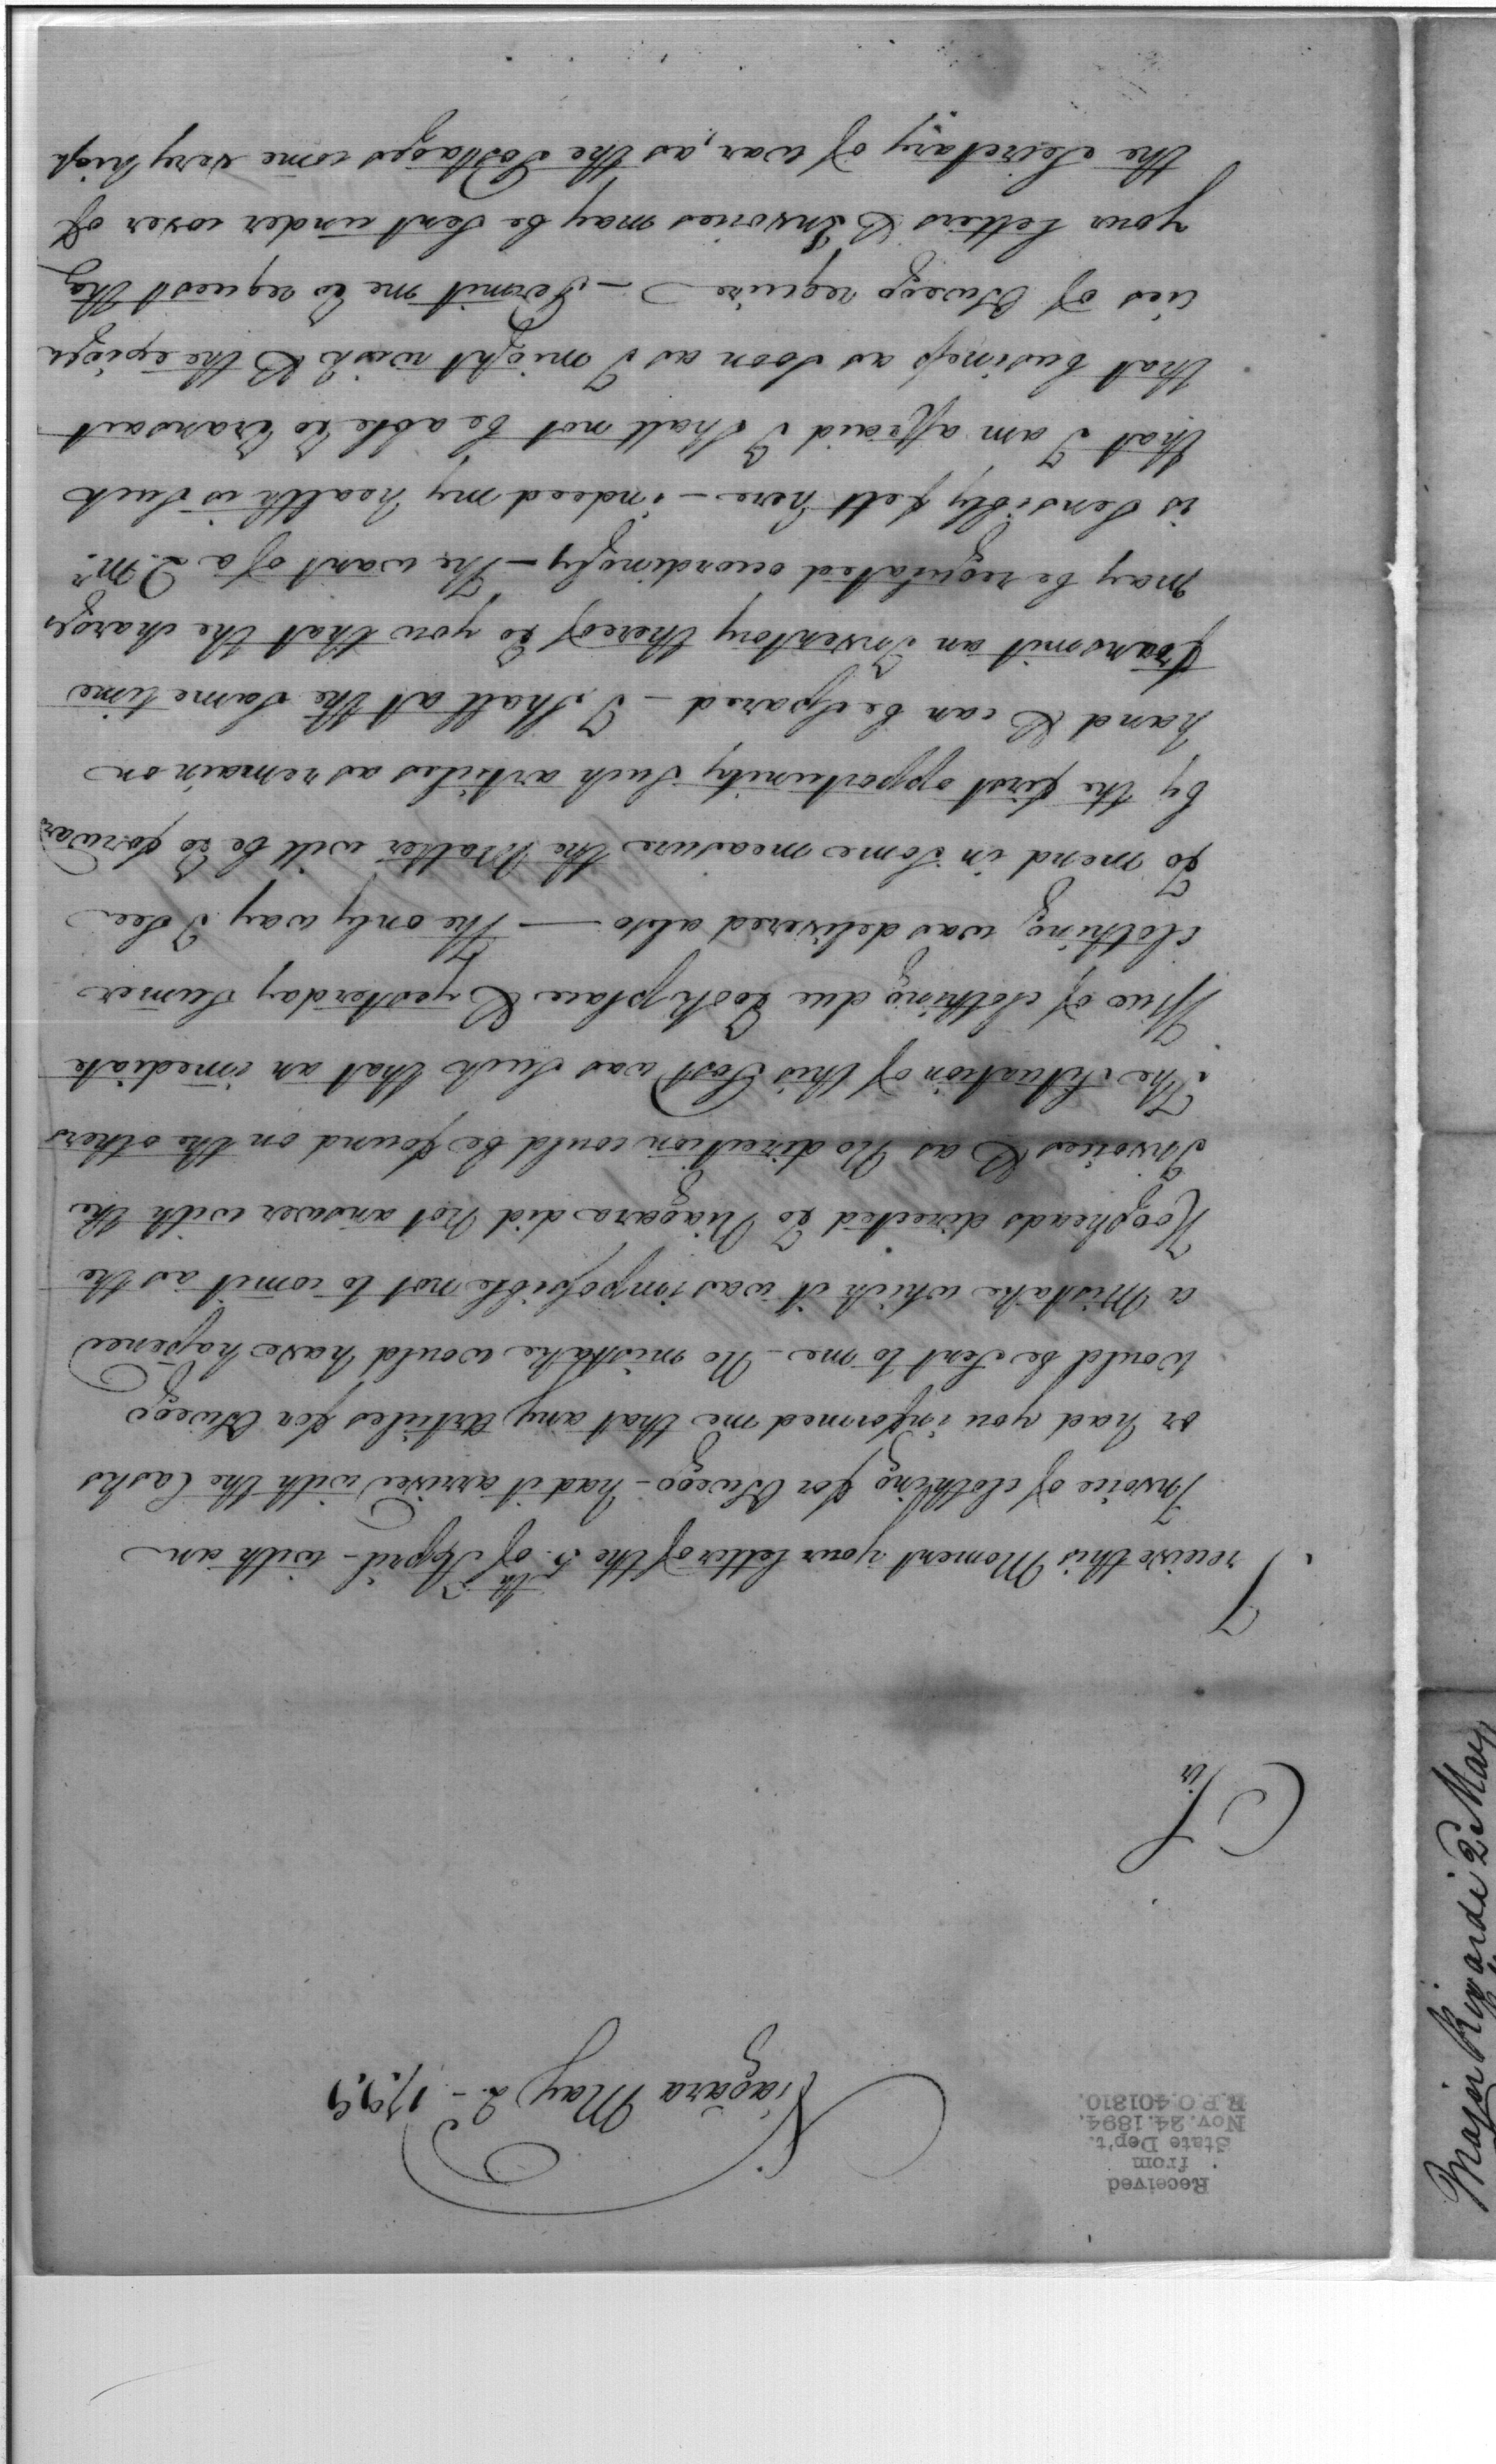 Received
from
State Dep't.
Nov. 24. 1894.
R.P.O. 401310.
Niagara May 2d - 1799
Sir
I
receive this Moment your letter of the 5th. of April - with an
Invoice of clothing for Oswego - had it arrived with the Casks
or had you informed me that any articles for Oswego
would be Sent to me - No mistake would have hapened
a Mistake which it was impossible not to comit as the
Hogsheads directed to Niagara did Not answer with the
Invoices & as No direction could be found on the others
The Situation of this Post was Such that an imediate
Issue of clothing due took place & yesterday Sumer
clothing was delivered also — The only way I See
To mend in Some measure the Matter will be to forward
by the first opportunity Such articles as remain on
hand & can be Spared - I Shall at the Same time
transmit an Inventory thereof to you that the charges
may be regulated accordingly - The want of a Q. Mr.
is Sensibly felt here - indeed my health is Such
that I am affraid I Shall not be able to transact
that business as Soon as I might wish & the exigen
cies of Oswego require - Permit me to request tha
your Letters & Invoices may be Sent under cover of
the Secretary of war, as the Postages come very high
Major Rivardi 2 May